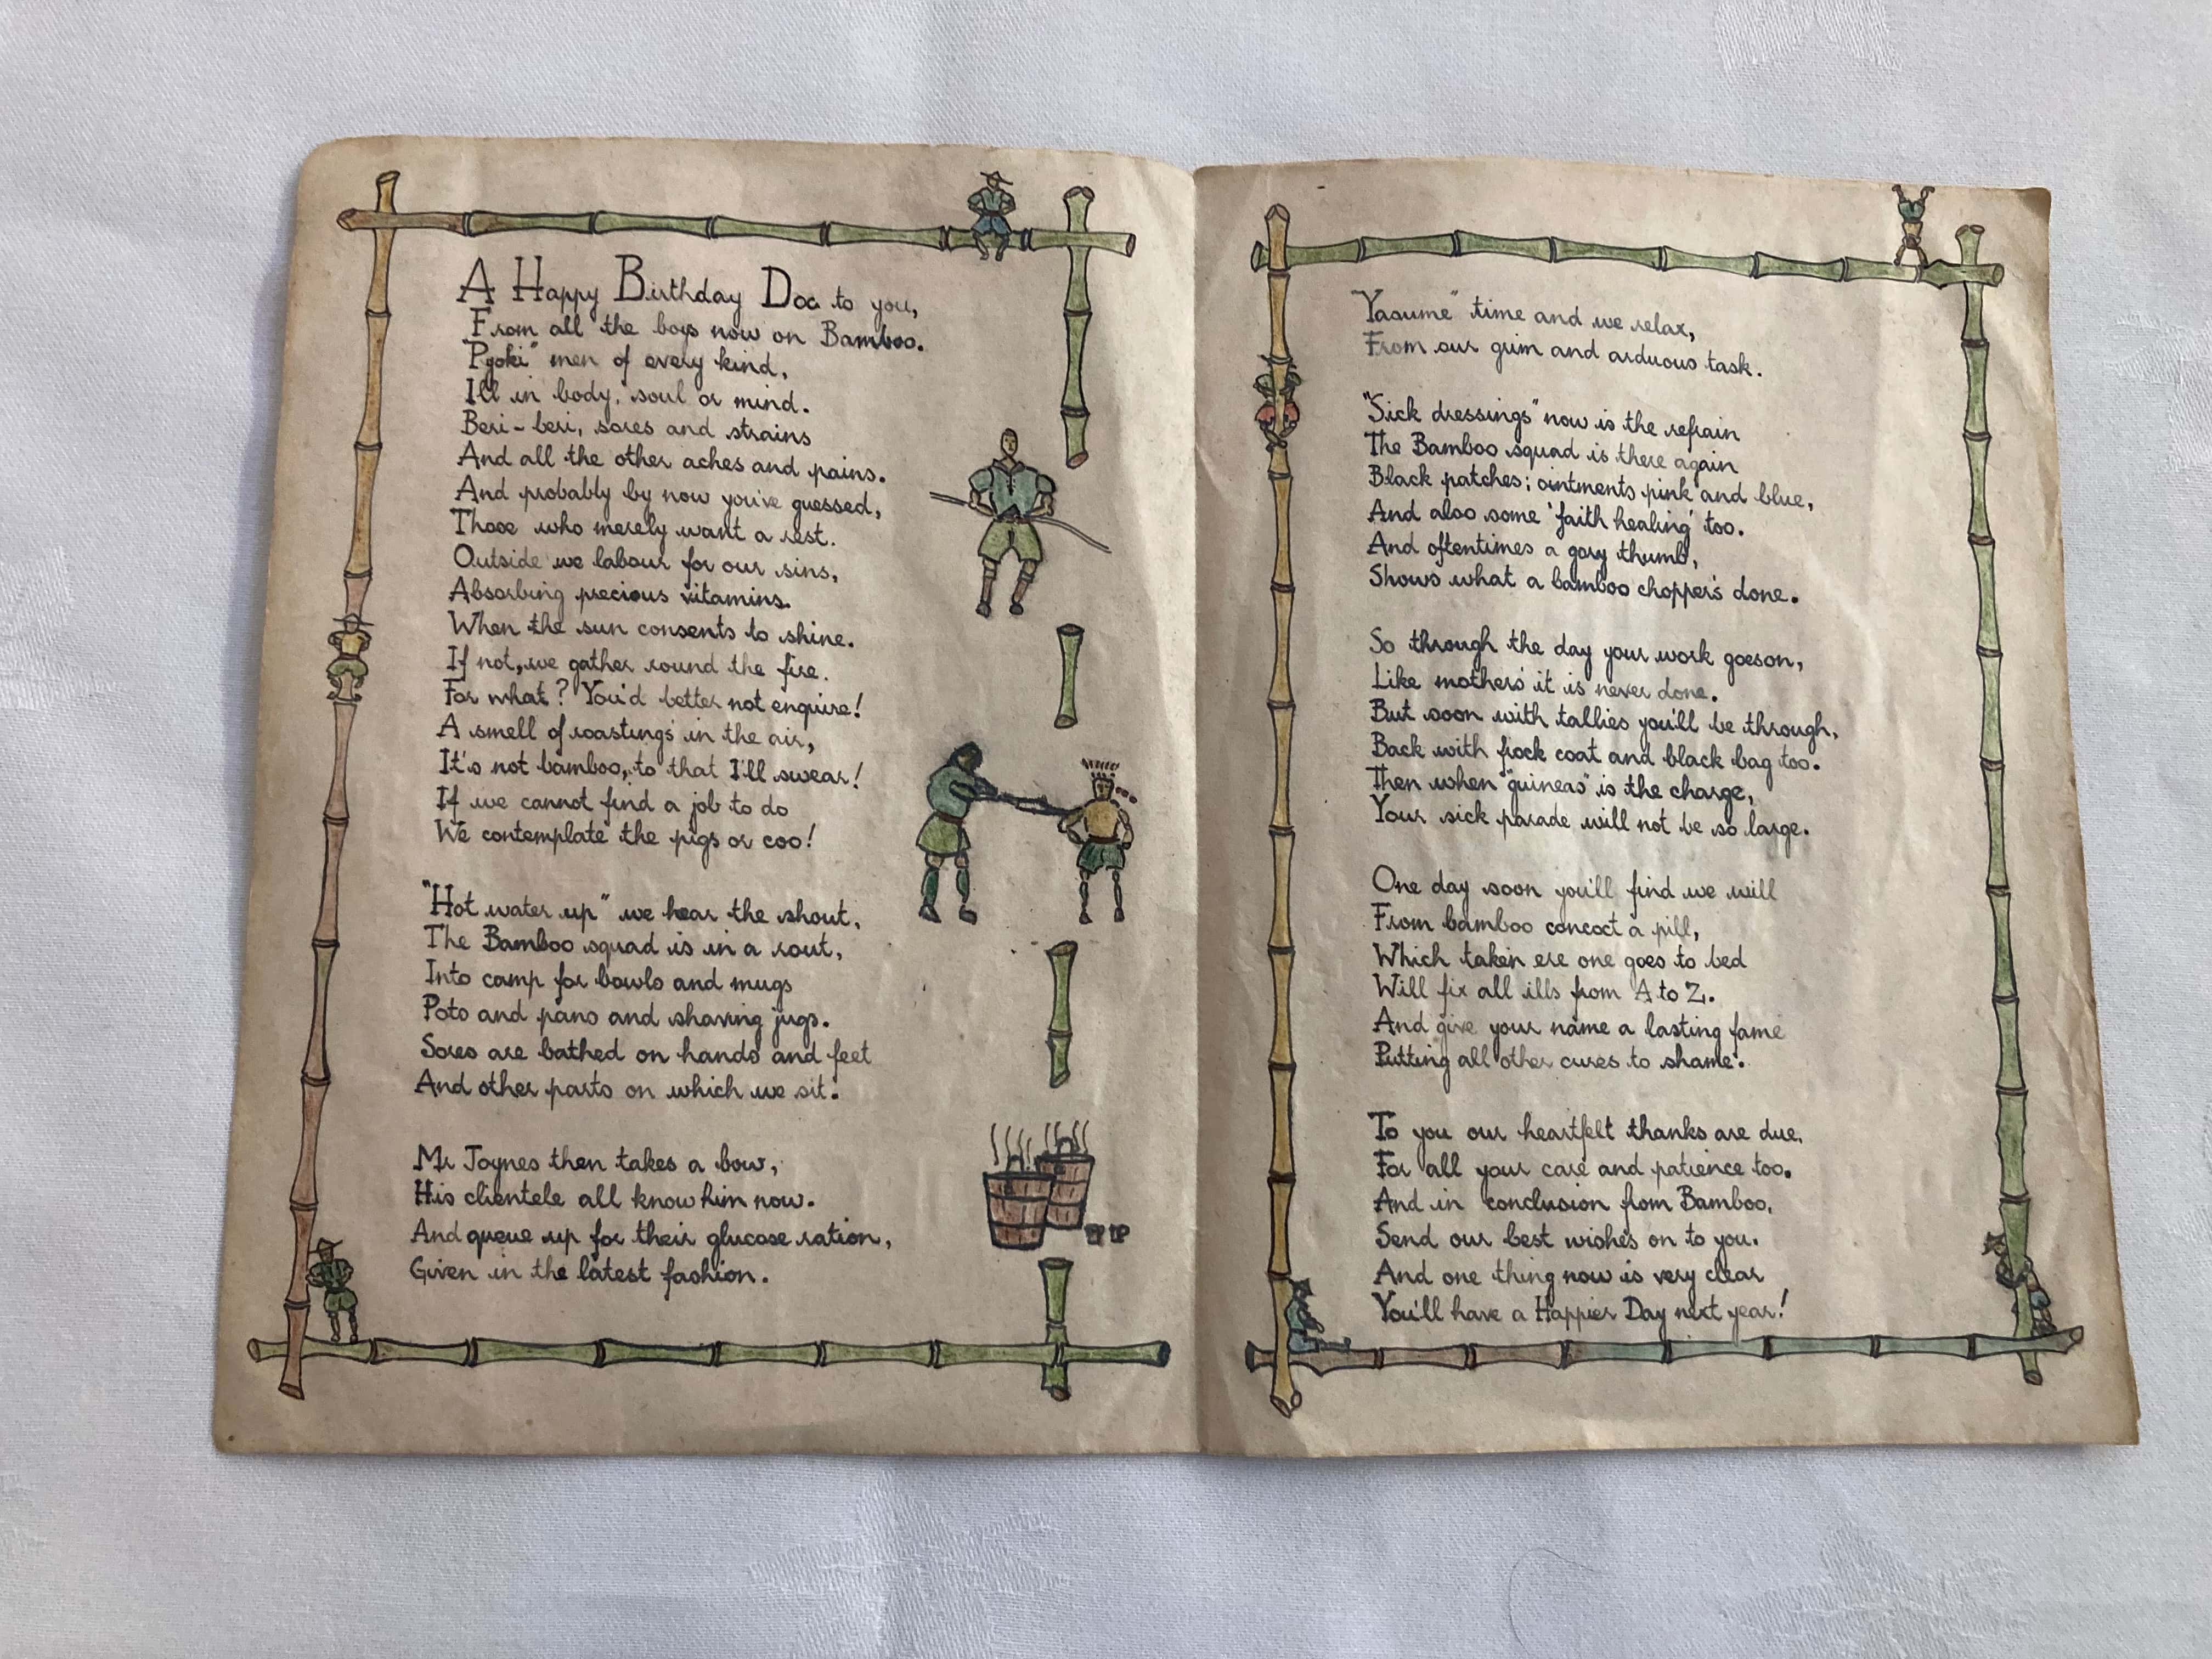 A Happy Birthday Doc to you,
From all the boys now on Bamboo.
"Pyoki" men of every kind,
Ill in body, soul or mind.
Beri-beri, sores and strains
And all the other aches and pains.
And probably by now you've guessed,
Those who merely want a rest.
Outside we labour for our sins,
Absorbing precious vitamins.
When the sun consents to shine.
If not, we gather round the fire.
For what? You'd better not enquire!
A smell of roastings in the air,
It's not bamboo, to that I'll swear!
If we cannot find a job to do
We contemplate the pigs or coo!
"Hot water up" we hear the shout,
The Bamboo squad is in a rout,
Into camp for bowls and mugs
Pots and pans and shaving jugs.
Sores are bathed on hands and feet
And other parts on which we sit.
Mr Joynes then takes a bow,
His clientele all know him now.
And queue up for their glucose ration,
Given in the latest fashion.
"Yasume" time and we relax,
From our grim and arduous task.
"Sick dressings" now is the refrain
The Bamboo squad is there again
Black patches; ointments pink and blue,
And also some 'faith healing' too.
And oftentimes a gory thumb,
Shows what a bamboo chopper's done.
So through the day your work goes on,
Like mothers' it is never done.
But soon with tallies you'll be through,
Back with frock coat and black bag too.
Then when "guineas" is the charge,
Your sick parade will not be so large.
One day soon you'll find we will
From bamboo concoct a pill,
Which taken ere one goes to bed
Will fix all ills from A to Z.
And give your name a lasting fame
Putting all other cures to shame.
To you our heartfelt thanks are due,
For all your care and patience too.
And in conclusion from Bamboo,
Send our best wishes on to you.
And one thing now is very clear
You'll have a Happier Day next year!